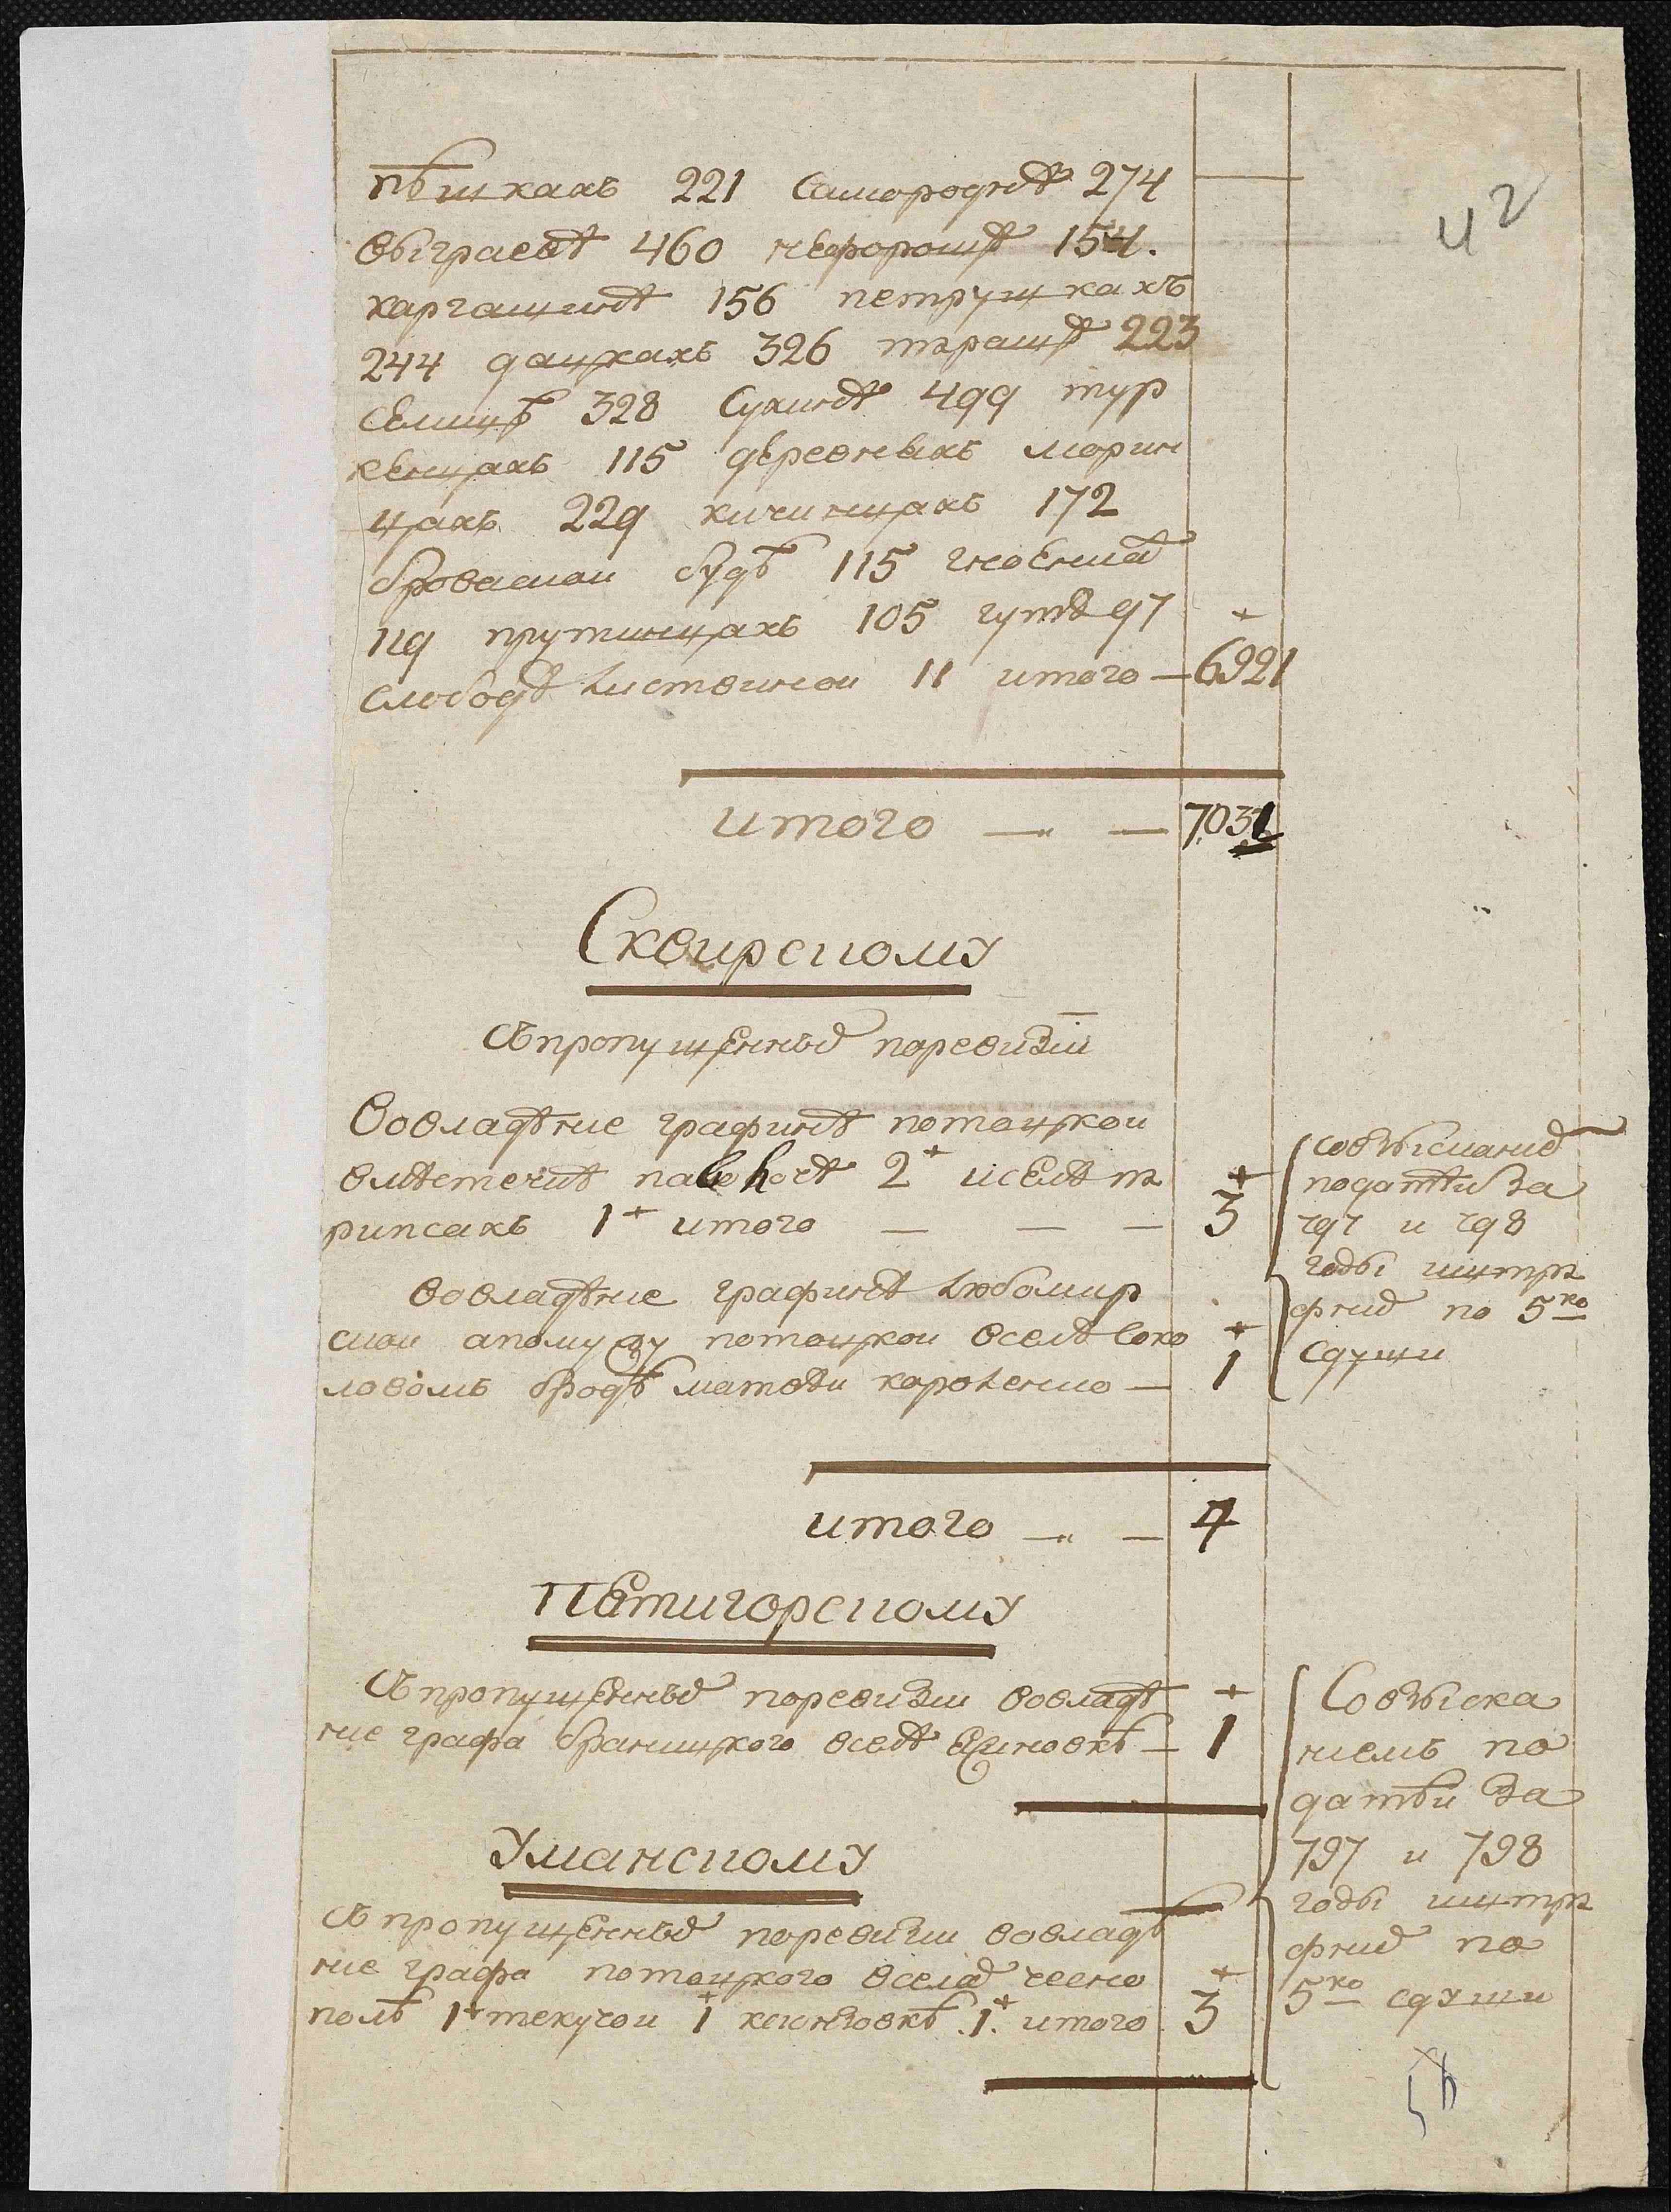 42
пѣшкахъ 221 Самороднѣ 274
выграевѣ 460 нефорощѣ 154.
каргашинѣ 156 петрушкахъ
244 дацкахъ 326 таращѣ 223
селищѣ 328 Сухинѣ 499 тур
кенцахъ 115 деревняхъ морин
цахъ 229 кичинцахъ 172
бровасхои будѣ 115 гноенкѣ
119 прутинцахъ 105 гутѣ 97
слободѣ листвинои 11 итого — 6921
итого — — 7031
Сквирскому
Съпропущенныхъ поревизіи
Вовладѣние графинѣ потоцкои
вмѣстечкѣ паволочѣ 2 иселѣ та
рипсахъ 1 итого — — — 3
вовладѣние графинѣ любомир
скои апомужу потоцкои вселѣ соко
ловомъ бродѣ матвѣи короленко — 1
совзысканиемъ
податѣи за
797 и 798
годы иштра
фниемъ по 5ко
сдуши
итого — — 4
Пятигорскому
Съпропущенныхъ поревизіи вовладѣ
ние графа браницкого вселѣ — 1
Уманскому
Съпропущенныхъ поревизіи вовладѣ
ние графа потоцкого вселахъ чесно
полѣ 1 текучои 1 ксюнзовкѣ 1. итого 3
Совзыска
ниемъ по
датѣи за
797 и 798
годы иштра
фниемъ по
5ко сдуши